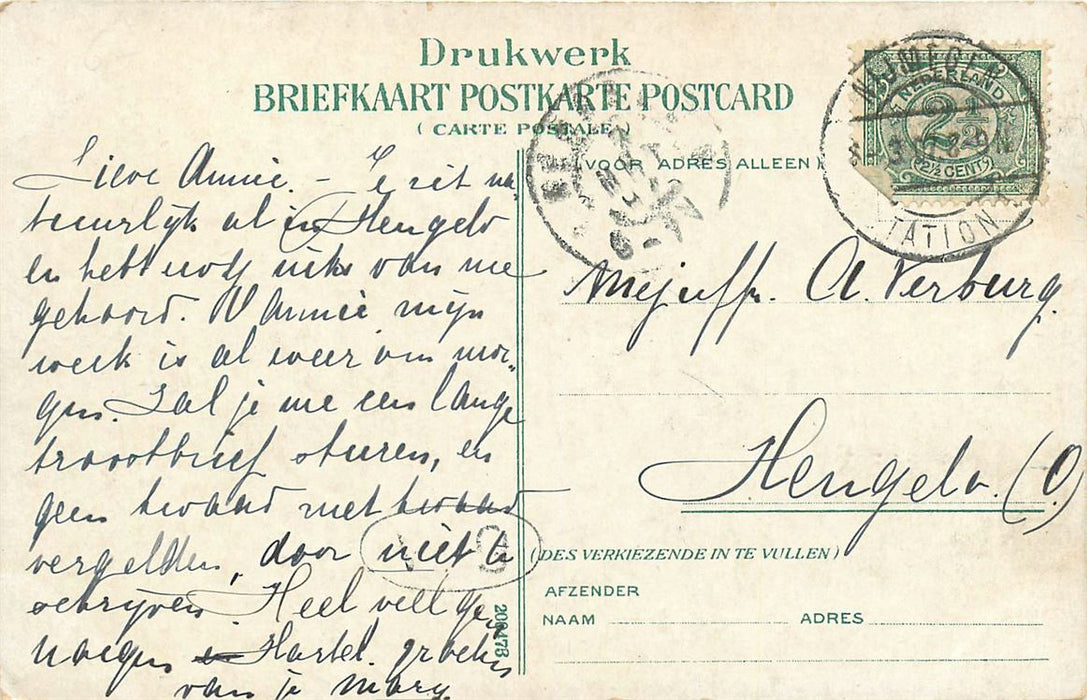 Drukwerk
BRIEFKAART POSTKARTE POSTCARD
( CARTE POSTALE )
(VOOR ADRES ALLEEN)
NEDERLAND
2½
(2½ CENT)
NIJMEGEN
STATION
HENGELO
Lieve Annie. – Je zit na
tuurlijk al in Hengelo
en hebt nog niks van me
gehoord. O Annie mijn
week is al weer om mor-
gen. Zal je me een lange
troostbrief sturen, en
geen kwaad met kwaad
vergelden, door niet te
schrijven. Heel veel ge
noegen Hartel. groeten
van je Mary
Mejuffr. A. Verburg.
Hengelo. (O)
(DES VERKIEZENDE IN TE VULLEN)
AFZENDER
NAAM ADRES